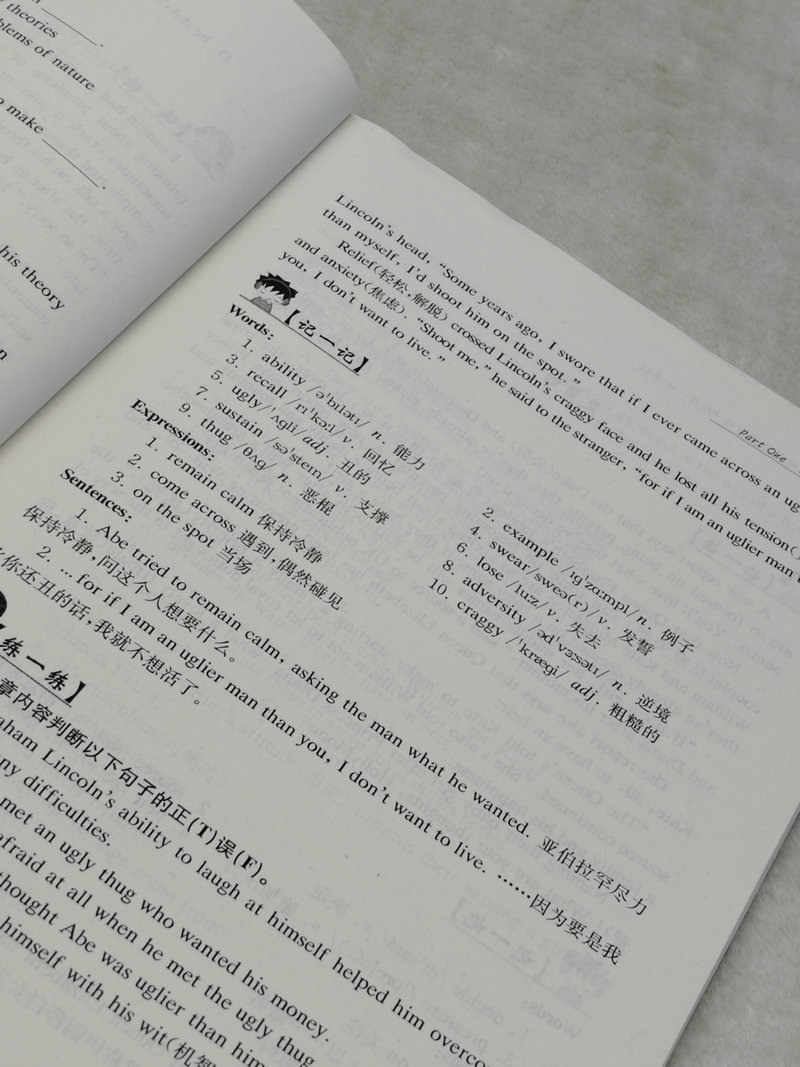 theories
blems of nature
make
his theory
Part One
Lincoln's head, “Some years ago, I swore that if I ever came across an
than myself, I'd shoot him on the spot.”
Relief(轻松,解脱) crossed Lincoln's craggy face and he lost all his tension(
and anxiety(焦虑). “Shoot me,” he said to the stranger, “for if I am an uglier man
you, I don't want to live.”
【记一记】
Words:
1. ability /ə'bɪlətɪ/ n. 能力
2. example /ɪg'zɑːmpl/ n. 例子
3. recall /rɪ'kɔːl/ v. 回忆
4. swear/sweə(r)/ v. 发誓
5. ugly/'ʌgli/ adj. 丑的
6. lose /luːz/ v. 失去
7. sustain /sə'steɪn/ v. 支撑
8. adversity /əd'vɜːsətɪ/ n. 逆境
9. thug /θʌg/ n. 恶棍
10. craggy /'krægi/ adj. 粗糙的
Expressions:
1. remain calm 保持冷静
2. come across 遇到,偶然碰见
3. on the spot 当场
Sentences:
1. Abe tried to remain calm, asking the man what he wanted. 亚伯拉罕尽力
保持冷静,问这个人想要什么。
2. ... for if I am an uglier man than you, I don't want to live. ……因为要是我
你还丑的话,我就不想活了。
练一练】
章内容判断以下句子的正(T)误(F)。
aham Lincoln's ability to laugh at himself helped him overco
ny difficulties.
met an ugly thug who wanted his money.
afraid at all when he met the ugly thug
thought Abe was uglier than him
himself with his wit(机智